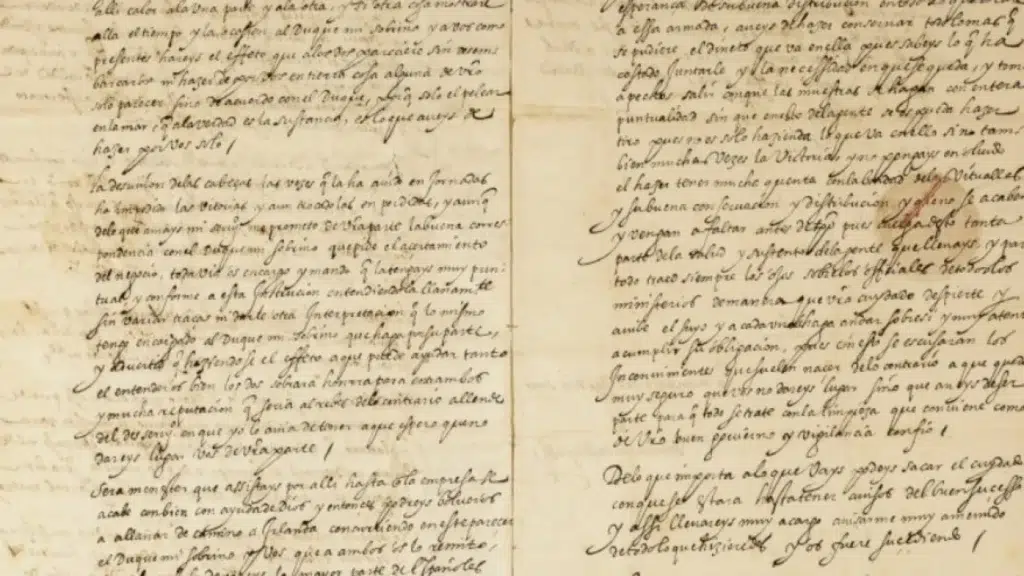 alli calor a la una parte y a la otra, y si otra cosa mostrare
alla el tiempo y la ocasion, al Duque mi sobrino y a vos como
presentes hareys el effeto, que a los dos pareciere sin desem
barcaros ni hazer por vos en tierra cosa alguna de vro
solo parecer sino de acuerdo con el Duque, porq solo el pelear
en la mar, q a la verdad es la sustancia, es lo que aveys de
hazer por vos solo /
La desunion de las cabeças las vezes q la ha avido en Jornadas
ha impedido las vitorias, y aun trocadolas en perdidas, y aunq
del que amays mi servi.º me prometo de vra parte la buena corres
pondencia con el Duque mi sobrino que pide el acertamiento
del negocio, toda via os encargo y mando q la tengays muy pun
tual, y conforme a esta Instrucion entendiendola llanamte
sin variar traças ni darle otra Interpretacion q lo mismo
tengo encargado al Duque mi sobrino que haga por su parte,
y advertid q haziendose el effeto a que puede ayudar tanto
el entenderos bien los dos sobrará honrra para entrambos
y mucha reputacion q seria al reves de lo contrario allende
del desserv.º en que yo lo avia de tener a que espero que no
dareys lugar vos de vra parte /
Sera menester que assistays por alli hasta q la empresa se
acabe con bien con ayuda de Dios y entonces podreys bolveros
a allanar de camino a Irlanda conviniendo en este parecer
el Duque mi sobrino y vos que a ambos os lo remito,
la mayor parte de los Españoles
esperança de su buena distribucion
a essa armada, aveys de hazer conservar todo lo mas q
se pudiere, el dinero que va en ella pues sabeys lo q ha
costado Juntarle y la necessidad en que se queda, y tom
a pechos salir con que las muestras se hagan con entera
puntualidad sin que en ellas de la gente se os pueda hazer
tiro pues no es solo hazienda lo que va en ello sino tam
bien muchas vezes la Victoria, y no pongays en olvido
el hazer tener mucha quenta con la bondad de las Vituallas
y su buena conservacion y distribucion, y que no se acaben
y vengan a faltar antes de tpo pues cuelga desto tanta
parte de la salud y sustento de la gente que llevays, y para
todo traed siempre los ojos sobre los officiales de todos los
ministerios de manera que vro cuydado despierte y
avive el suyo y a cada uno haga andar sobre si y muy atento
a cumplir su obligacion, pues en esto se escusaran los
Inconvinientes que suelen nacer de lo contrario a que quedo
muy seguro que vos no dareys lugar sino que aveys de ser
parte para q todo se trate con la limpieza que conviene como
de vro buen govierno y vigilancia confio /
De lo que importa a lo que vays podeys sacar el cuydado
con que se estara hasta tener avisos del buen sucesso
y assi llevareys muy a cargo avisarme muy a menudo
de todo lo que hizieredes y os fuere sucediendo /